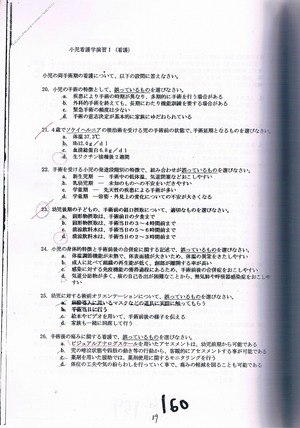 小児看護学演習Ⅰ（看護）
小児の周手術期の看護について，以下の設問に答えなさい。
20. 小児の手術の特徴として，誤っているものを選びなさい。
a. 疾患により手術の時期が異なり，多期的に手術を行う場合がある
b. 外科的手術を終えても，長期にわたり機能訓練を要する場合がある
c. 緊急手術の頻度は少ない
d. 手術の意思決定が基本的に家族にゆだねられている
21. 4歳でソケイヘルニアの根治術を受ける児の手術前の状態で，手術延期となるものを選びなさい。
a. 体温37.3℃
b. Hb12.0g／dl
c. 血清総蛋白6.8g／dl
d. 生ワクチン接種後2週間
22. 手術を受ける小児の発達段階別の特徴で，組み合わせが誤っているものを選びなさい。
a. 新生児期 ― 手術中の低体温，気道閉塞などおこしやすい
b. 乳幼児期 ― 未知のものへの不安をいだきやすい
c. 学童期 ― 先天性の疾患による手術が多い
d. 学童期 ― 容姿・外見上の変化についての不安が大きくなる
23. 幼児前期の子どもの，手術前の経口摂取について，適切なものを選びなさい。
a. 固形物摂取は，手術前日の夕食まで
b. 固形物摂取は，手術当日の3～4時間前まで
c. 清澄飲料水は，手術当日の2～3時間前まで
d. 清澄飲料水は，手術当日の3～4時間前まで
24. 小児の身体的特徴と手術前後の合併症に関する記述で，誤っているものを選びなさい。
a. 体温調節機能が未熟で，体表面積が大きいため，体温の異常をきたしやすい
b. 成人に比べて組織の再生能が低く，創部が離開する事が高い
c. 感染に対する免疫機能の獲得過程にあるため，手術前後の合併症をおこしやすい
d. 気道分泌物が多く，痰の自己喀出が困難なことから，無気肺や呼吸器感染症をおこしやす
い
25. 幼児に対する術前オリエンテーションについて，誤っているものを選びなさい。
b. 手術当日に行う
c. 絵本やビデオを用いて，手術前後の様子を伝える
d. 家族も一緒に同席して行う
26. 手術後の痛みに関する看護で，誤っているものを選びなさい。
a. ビジュアルアナログスケールを用いたアセスメントは，幼児前期から可能である
b. 児の啼泣状態や四肢の動き等の行動から，客観的にアセスメントする事が可能である
c. 薬剤を用いた援助では，薬剤使用に関するモニタリングを行う
d. 体位の工夫や気の紛らわしを行っていく事で，痛みの軽減を図ることも可能である
160
19